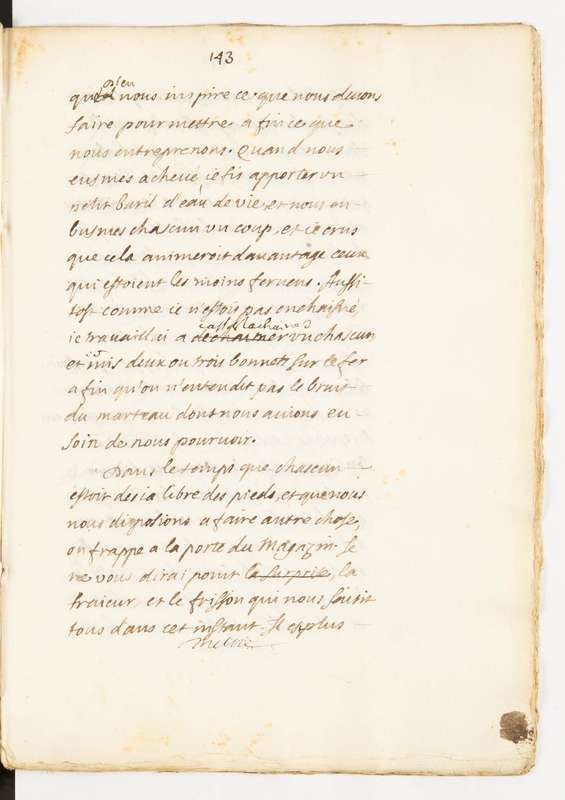 143
Dieu
que nous inspire ce que nous deuons
faire pour mettre a fin ce que
nous entreprenons. Quand nous
eusmes acheué ie fis apporter vn
petit baril d'eau de vie, et nous en
busmes chascun vn coup, et ie crus
que cela animeroit dauantage ceux
qui estoient les moins feruens. Aussi-
tost comme ie n'estois pas enchaisné,
casser la chaine
ie travaillai a dechainer vn chascun
et mis deux ou trois bonnets sur le fer
afin qu'on n'entendit pas le bruit
du marteau dont nous auions eu
soin de nous pouruoir.
Dans le temps que chascun
estoit desia libre des pieds, et que nous
nous disposions a faire autre chose,
on frappe a la porte du Magazin. Je
ne vous dirai point la surprise, la
fraieur, et le frisson qui nous saisit
tous dans cet instant. Il est plus